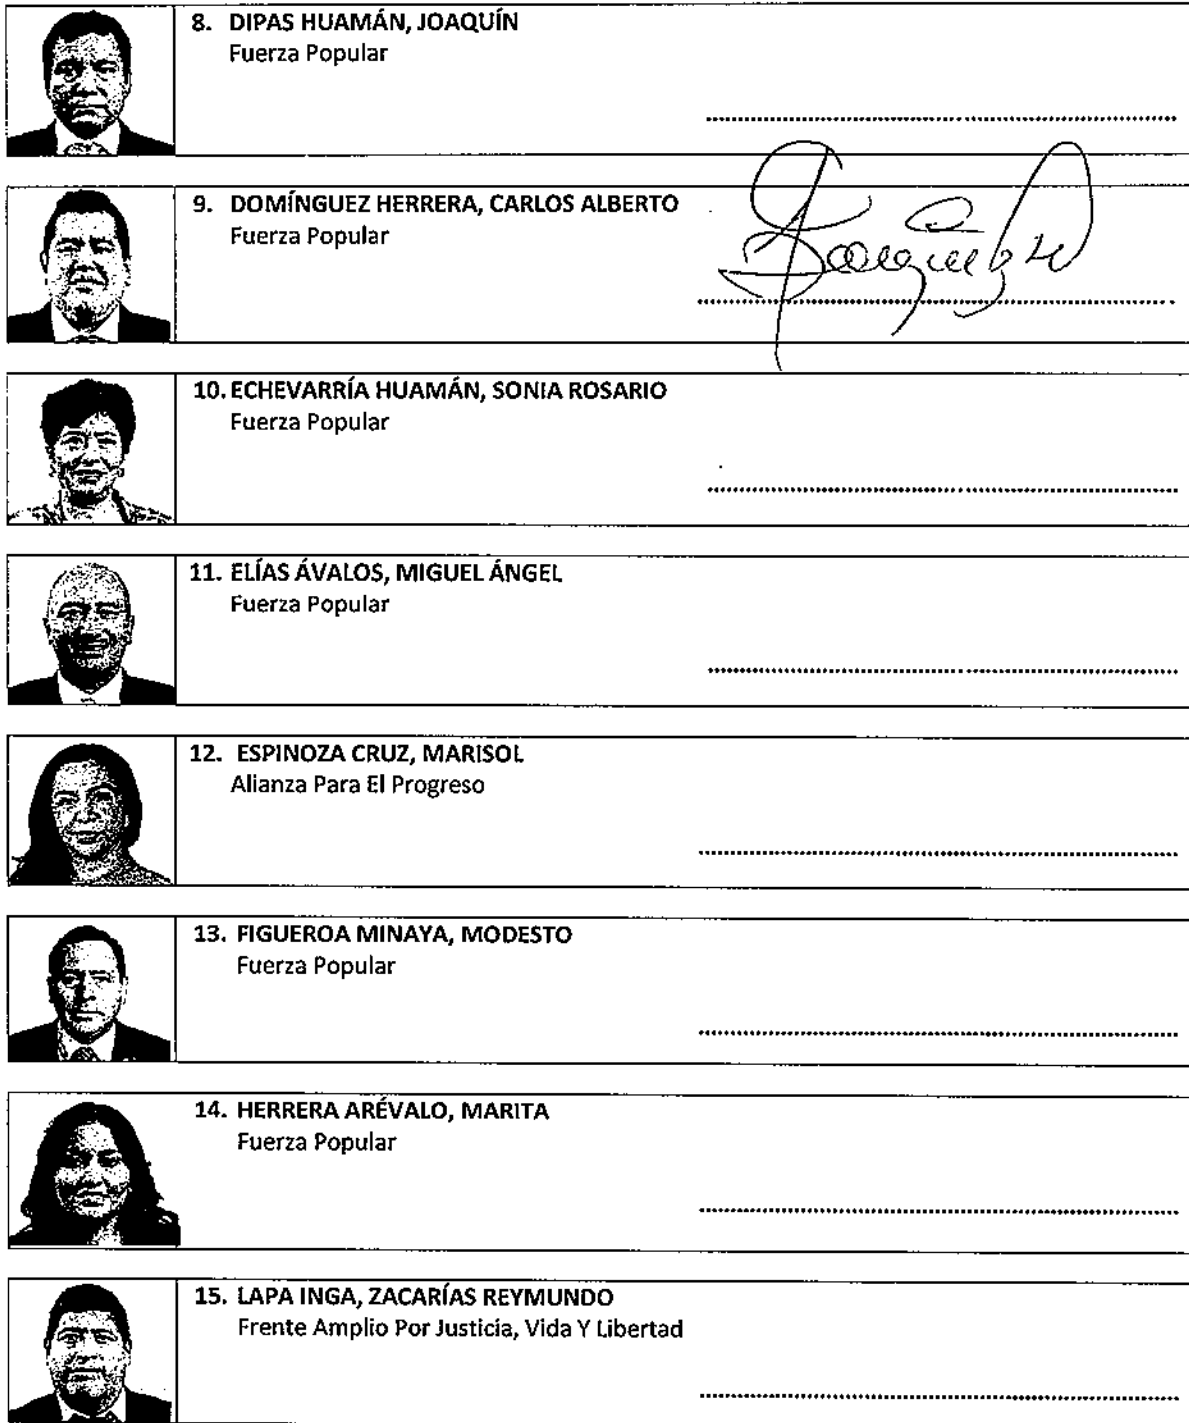 8. DIPAS HUAMÁN, JOAQUÍN
Fuerza Popular
9. DOMÍNGUEZ HERRERA, CARLOS ALBERTO
Fuerza Popular
10. ECHEVARRÍA HUAMÁN, SONIA ROSARIO
Fuerza Popular
11. ELÍAS ÁVALOS, MIGUEL ÁNGEL
Fuerza Popular
12. ESPINOZA CRUZ, MARISOL
Alianza Para El Progreso
13. FIGUEROA MINAYA, MODESTO
Fuerza Popular
14. HERRERA ARÉVALO, MARITA
Fuerza Popular
15. LAPA INGA, ZACARÍAS REYMUNDO
Frente Amplio Por Justicia, Vida Y Libertad